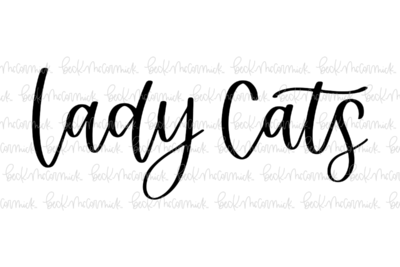 Lady Cats